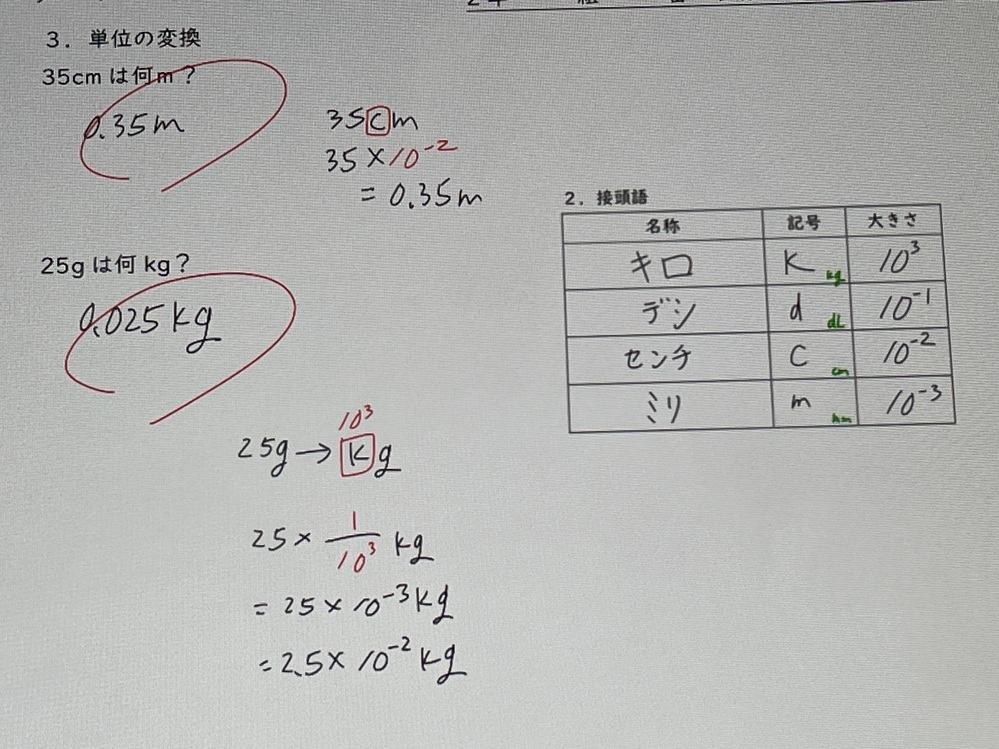 3．単位の変換
35cm は何m？
0.35m
35cm
35×10⁻²
= 0.35m
25g は何 kg？
0.025kg
10³
25g→kg
25× 1/10³ kg
= 25×10⁻³kg
= 2.5×10⁻²kg
2．接頭語
名称 記号 大きさ
キロ K kg 10³
デシ d dL 10⁻¹
センチ C cm 10⁻²
ミリ m mm 10⁻³